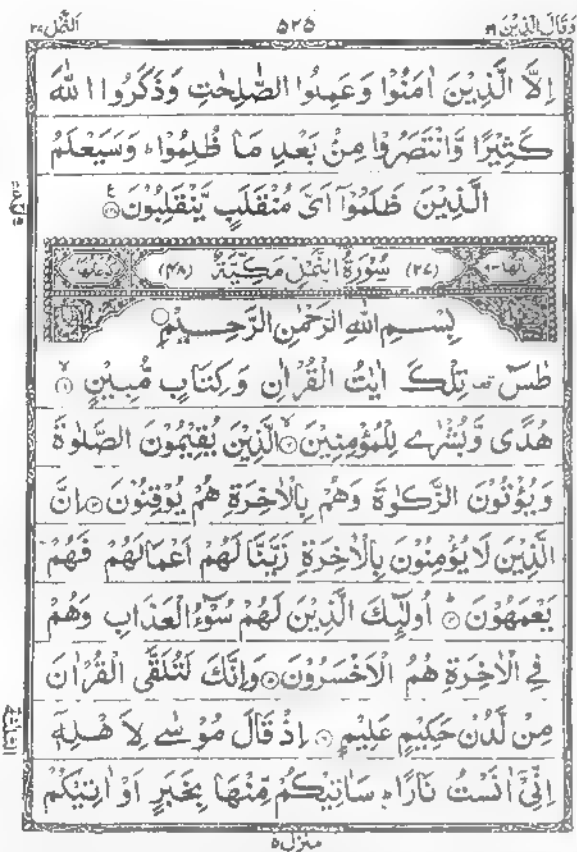 وَقَالَ الَّذِيْنَ ١٩ ٥٢٥ اَلنَّمْل ٢٧
اِلَّا الَّذِيْنَ اٰمَنُوْا وَعَمِلُوا الصّٰلِحٰتِ وَذَكَرُوا اللّٰهَ
كَثِيْرًا وَّانْتَصَرُوْا مِنْۢ بَعْدِ مَا ظُلِمُوْا ؕ وَسَيَعْلَمُ
الَّذِيْنَ ظَلَمُوْۤا اَىَّ مُنْقَلَبٍ يَّنْقَلِبُوْنَ
اٰيَاتُهَا ٩٣ (٢٧) سُوْرَةُ النَّمْلِ مَكِّيَّةٌ (٤٨)
بِسْمِ اللّٰهِ الرَّحْمٰنِ الرَّحِيْمِ
طٰسٓ ۚ تِلْكَ اٰيٰتُ الْقُرْاٰنِ وَكِتَابٍ مُّبِيْنٍ ۙ‏﴿١﴾
هُدًى وَّبُشْرٰى لِلْمُؤْمِنِيْنَ ۙ‏﴿٢﴾ الَّذِيْنَ يُقِيْمُوْنَ الصَّلٰوةَ
وَيُؤْتُوْنَ الزَّكٰوةَ وَهُمْ بِالْاٰخِرَةِ هُمْ يُوْقِنُوْنَ ﴿٣﴾ اِنَّ
الَّذِيْنَ لَا يُؤْمِنُوْنَ بِالْاٰخِرَةِ زَيَّنَّا لَهُمْ اَعْمَالَهُمْ فَهُمْ
يَعْمَهُوْنَ ؕ‏﴿٤﴾ اُولٰٓئِكَ الَّذِيْنَ لَهُمْ سُوْٓءُ الْعَذَابِ وَهُمْ
فِى الْاٰخِرَةِ هُمُ الْاَخْسَرُوْنَ ﴿٥﴾ وَاِنَّكَ لَتُلَقَّى الْقُرْاٰنَ
مِنْ لَّدُنْ حَكِيْمٍ عَلِيْمٍ ﴿٦﴾ اِذْ قَالَ مُوْسٰى لِاَهْلِهٖۤ
اِنِّىْۤ اٰنَسْتُ نَارًا ؕ سَاٰتِيْكُمْ مِّنْهَا بِخَبَرٍ اَوْ اٰتِيْكُمْ
منزل ٥